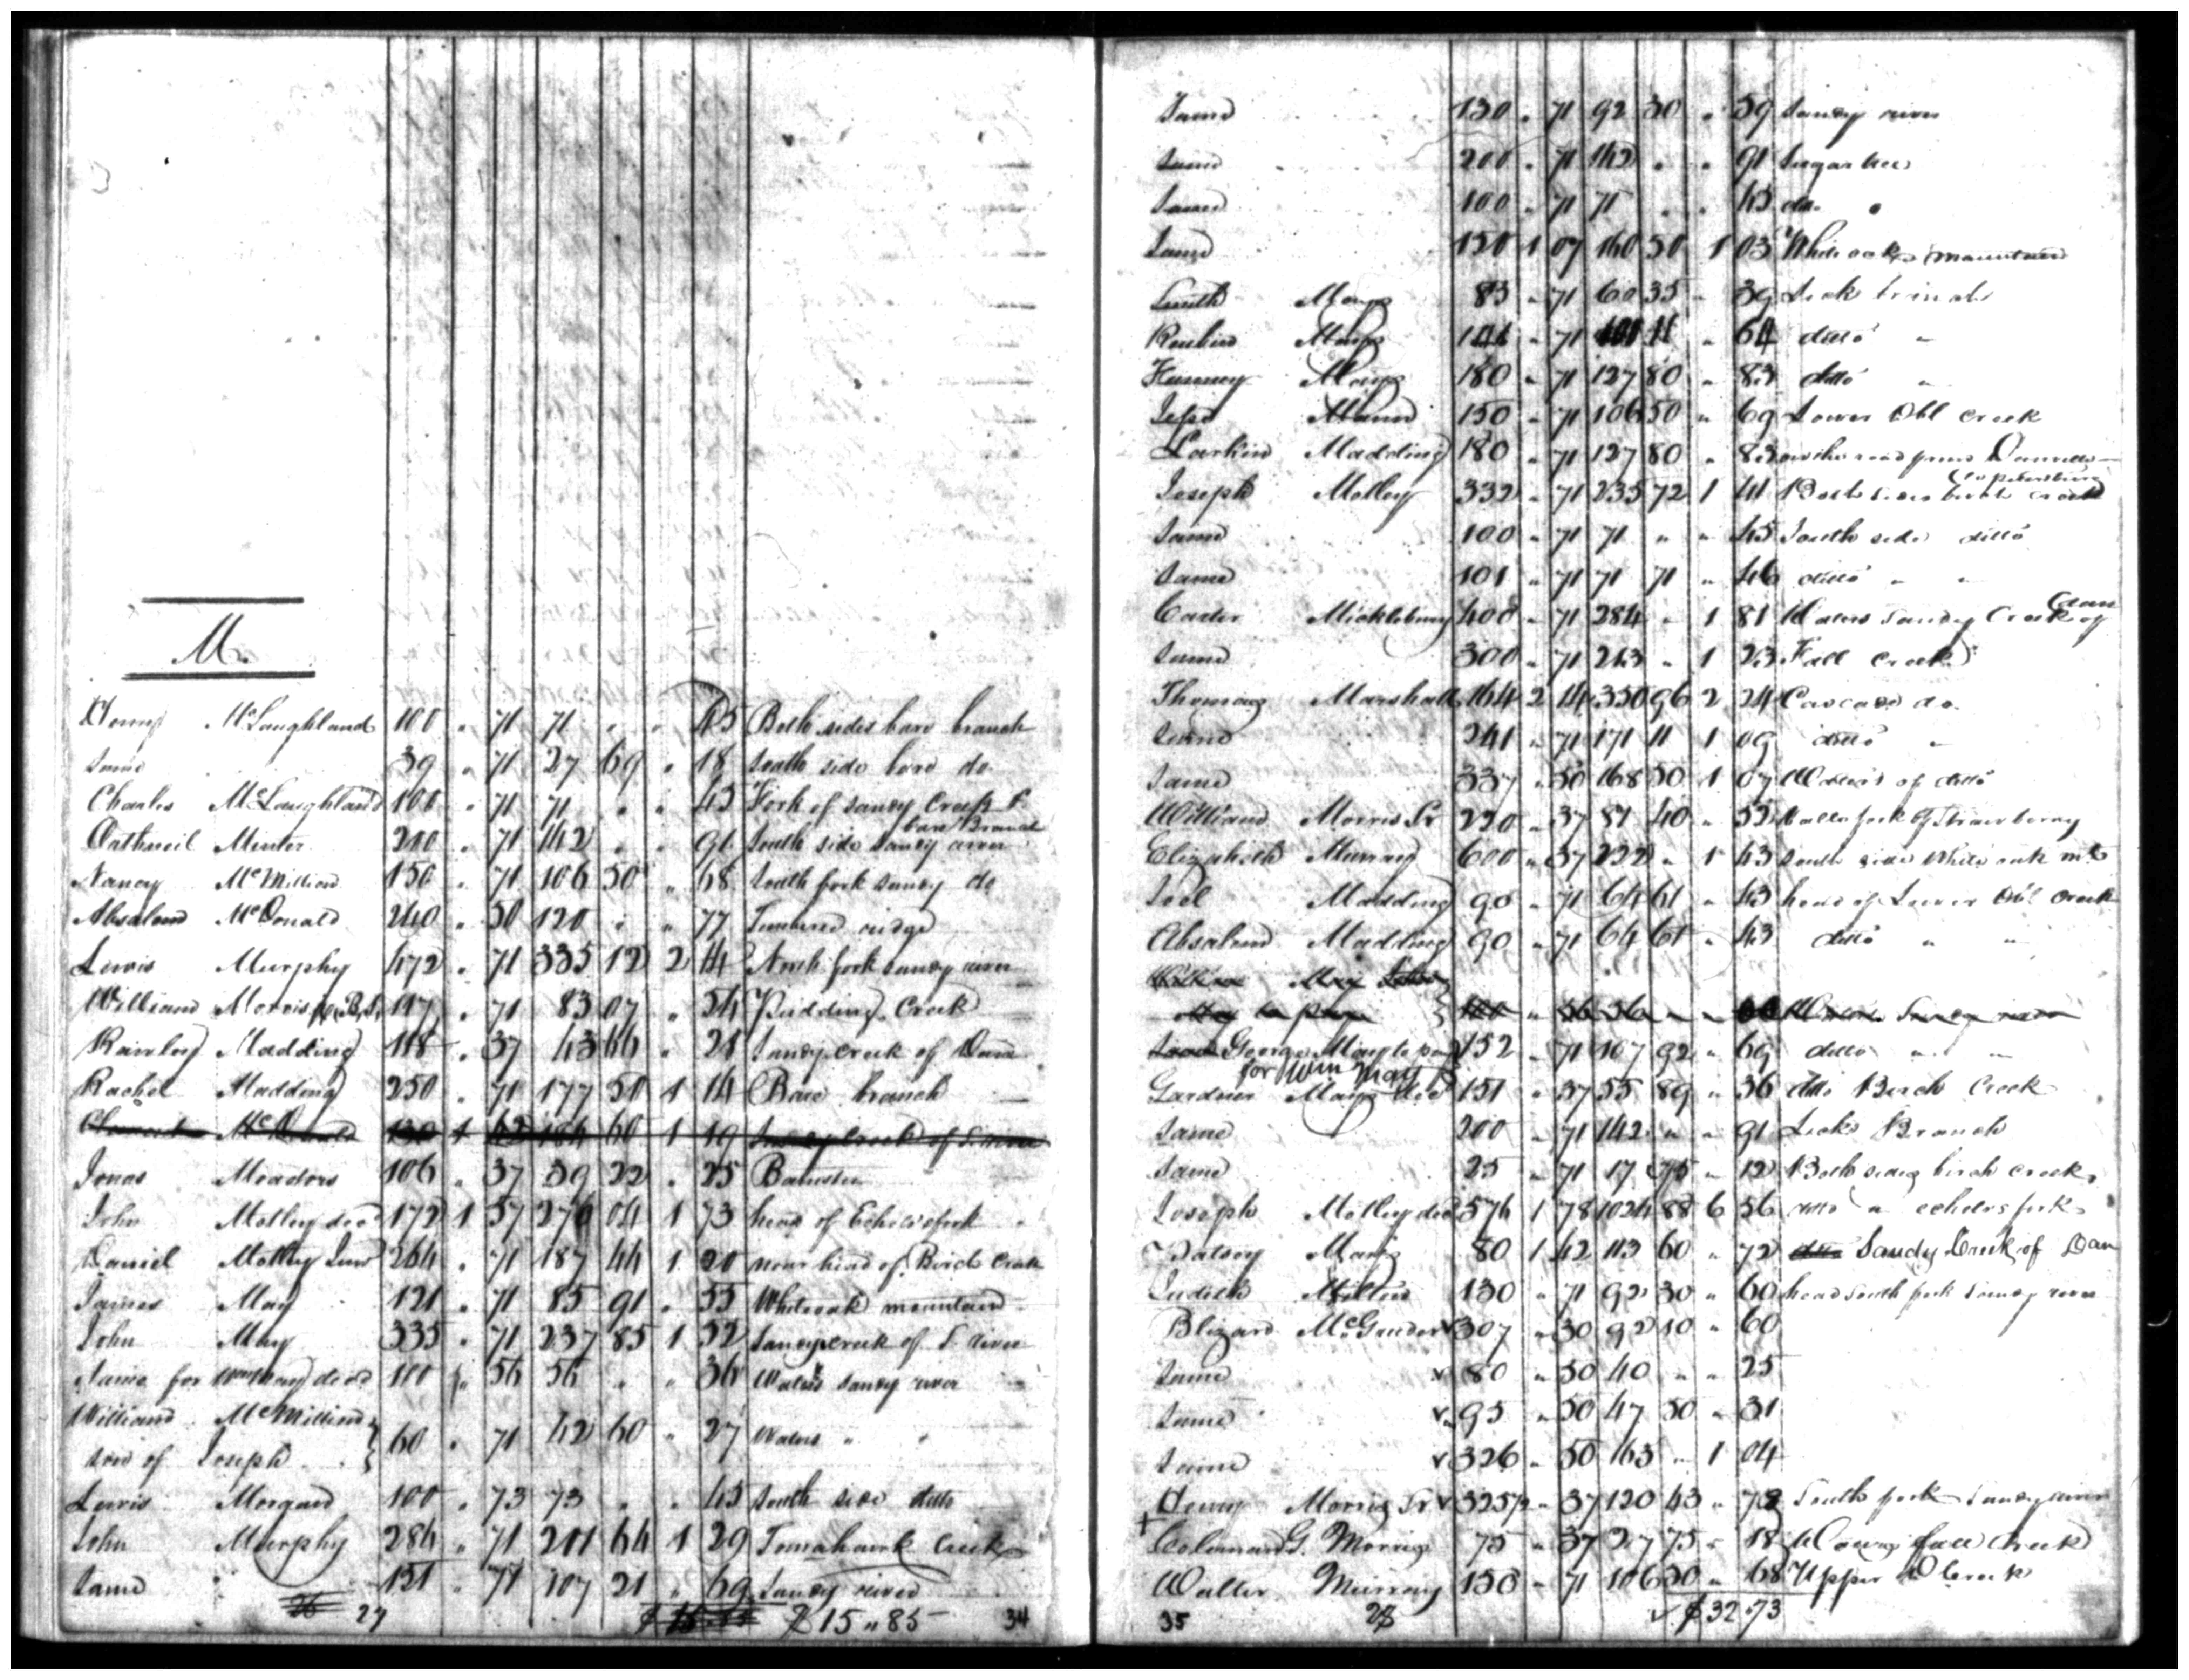 M
Henry McLaughland 100 " 71 71 " " 45 Both sides bare branch
Same 39 " 71 27 69 " 18 South side bare do
Charles McLaughland 100 " 71 71 " " 45 Fork of Sandy Creek &
bare Branch
Minter 200 " 71 142 " " 91 South side Sandy river
Nancy McMillion 150 " 71 106 50 " 68 South fork Sandy do
Absalom McDonald 240 " 50 120 " " 77 ridge
Lewis Murphy 472 " 71 335 12 2 14 North fork Sandy river
William Morris 117 " 71 83 07 " 54 Pudding Creek
Madding 118 " 37 43 66 " 28 Sandy creek of Dan
Rachel Madding 250 " 71 177 50 1 14 Bare branch
1 60 1 19
Jonas Meadors 106 " 37 39 22 " 25 Banister
John Motley decd 172 1 57 270 04 1 73 head of Echols fork
Daniel Motley 264 " 71 187 44 1 20 near head of Birch Creek
James May 121 " 71 85 91 " 55 Whiteoak mountain
John May 335 " 71 237 85 1 52 Sandy creek of S river
Same for Wm May decd 100 " 56 56 " " 36 Waters Sandy river
William McMillion
son of Joseph 60 " 71 42 60 " 27 Waters " "
Lewis Morgan 100 " 73 73 " " 45 South side ditto
John Murphy 284 " 71 201 64 1 29 Tomahawk Creek
Same 151 " 71 107 21 " 69 Sandy river
27 $15 " 85 34
Same 130 " 71 92 30 " 59 Sandy river
Same 200 " 71 142 " " 91 Sugar tree
Same 100 " 71 71 " " 45 do
Same 150 1 07 160 50 1 03 White oak mountain
Mays 85 " 71 60 35 " 39 Lick branch
Reubin Mays " 71 11 " 64 ditto "
Mays 180 " 71 127 80 " 82 ditto "
Jesse Mann 150 " 71 106 50 " 69 Lower Obl creek
Larkin Madding 180 " 71 127 80 " 82 on the road from Danville
to
Joseph Motley 332 " 71 235 72 1 41 Both sides birch creek
Same 100 " 71 71 " " 45 South side ditto
Same 101 " 71 71 71 " 46 ditto " "
Carter Mickleburg 400 " 71 284 " 1 81 Waters Sandy Creek of
Dan
Same 300 " 71 213 " 1 23 Fall creek
Thomas Marshall 164 2 14 350 96 2 24 Cascade do
Same 241 " 71 171 11 1 09 ditto "
Same 337 " 50 168 50 1 07 Waters of ditto
William Morris Sr 220 " 37 81 40 " 52 fork of Strawberry
Elizabeth Murray 600 " 37 222 " 1 43 South side White oak mt
Joel Madding 90 " 71 64 61 " 43 head of Lower Obl creek
Absalom Madding 90 " 71 64 61 " 43 ditto " "
May
George May 152 " 71 107 92 " 69 ditto " "
for Wm May
Gardner Mays decd 151 " 37 55 89 " 36 ditto Birch Creek
Same 200 " 71 142 " " 91 Licks Branch
Same 25 " 71 17 75 " 12 Both sides birch creek
Joseph Motley decd 576 1 78 1024 88 6 56 ditto " echols fork
Mays 80 1 42 113 60 " 72 Sandy Creek of Dan
Judith 130 " 71 92 30 " 60 head South fork Sandy river
Blizard 307 " 30 92 10 " 60
Same v 80 " 50 40 " " 25
Same v 95 " 50 47 50 " 31
Same v 326 " 50 163 " 1 04
+ Henry Morris Sr v 325½ " 37 120 43 " 78 South fork Sandy river
Coleman G. Morris 75 " 37 27 75 " 18 Fall Creek
Walter Murray 150 " 71 106 50 " 68 Upper Creek
35 28 v $32.73